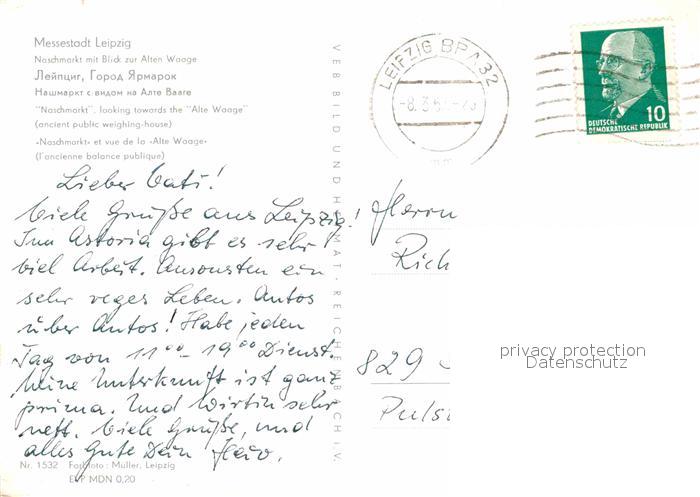 Messestadt Leipzig
Naschmarkt mit Blick zur Alten Waage
Лейпциг, Город Ярмарок
Нашмаркт с видом на Алте Вааге
"Naschmarkt", looking towards the "Alte Waage"
(ancient public weighing-house)
«Naschmarkt» et vue de la «Alte Waage»
(l'ancienne balance publique)
Lieber Vati!
Viele Grüße aus Leipzig!
Im Astoria gibt es sehr
viel Arbeit. Ansonsten ein
sehr reges Leben. Autos
über Autos! Habe jeden
Tag von 11⁰⁰ - 19⁰⁰ Dienst.
Meine Unterkunft ist ganz
prima. Und Wirtin sehr
nett. Viele Grüße, und
alles Gute Dein
Nr. 1532 Farbfoto: Müller, Leipzig
EVP MDN 0,20
VEB BILD UND HEIMAT REICHENBACH I.V.
LEIPZIG BPA 32
10
DEUTSCHE
DEMOKRATISCHE REPUBLIK
Herrn
Rich
829
Pulsn
privacy protection
Datenschutz